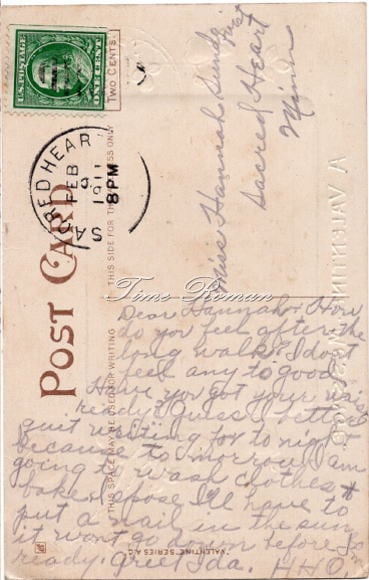 U.S. POSTAGE
ONE CENT
TWO CENTS.
SACRED HEAR
FEB
9
8PM
191
POST CARD
THIS SIDE FOR THE ADDRESS ONLY
THIS SPACE MAY BE USED FOR WRITING
Miss Hannah Sunde
Sacred Heart
Minn
A VALENTINE MESSAGE
Time-Roman
Dear Hannah: How
do you feel after the
long walk? I don't
feel any to good.
Have you got your waist
ready? Guess I better
quit writing for to night
because to morrow I am
going to wash clothes &
bake. I spose I'll have to
put a nail in the sun
it wont go down before I'm
ready. Greet Ida. H H O.
"VALENTINE" SERIES